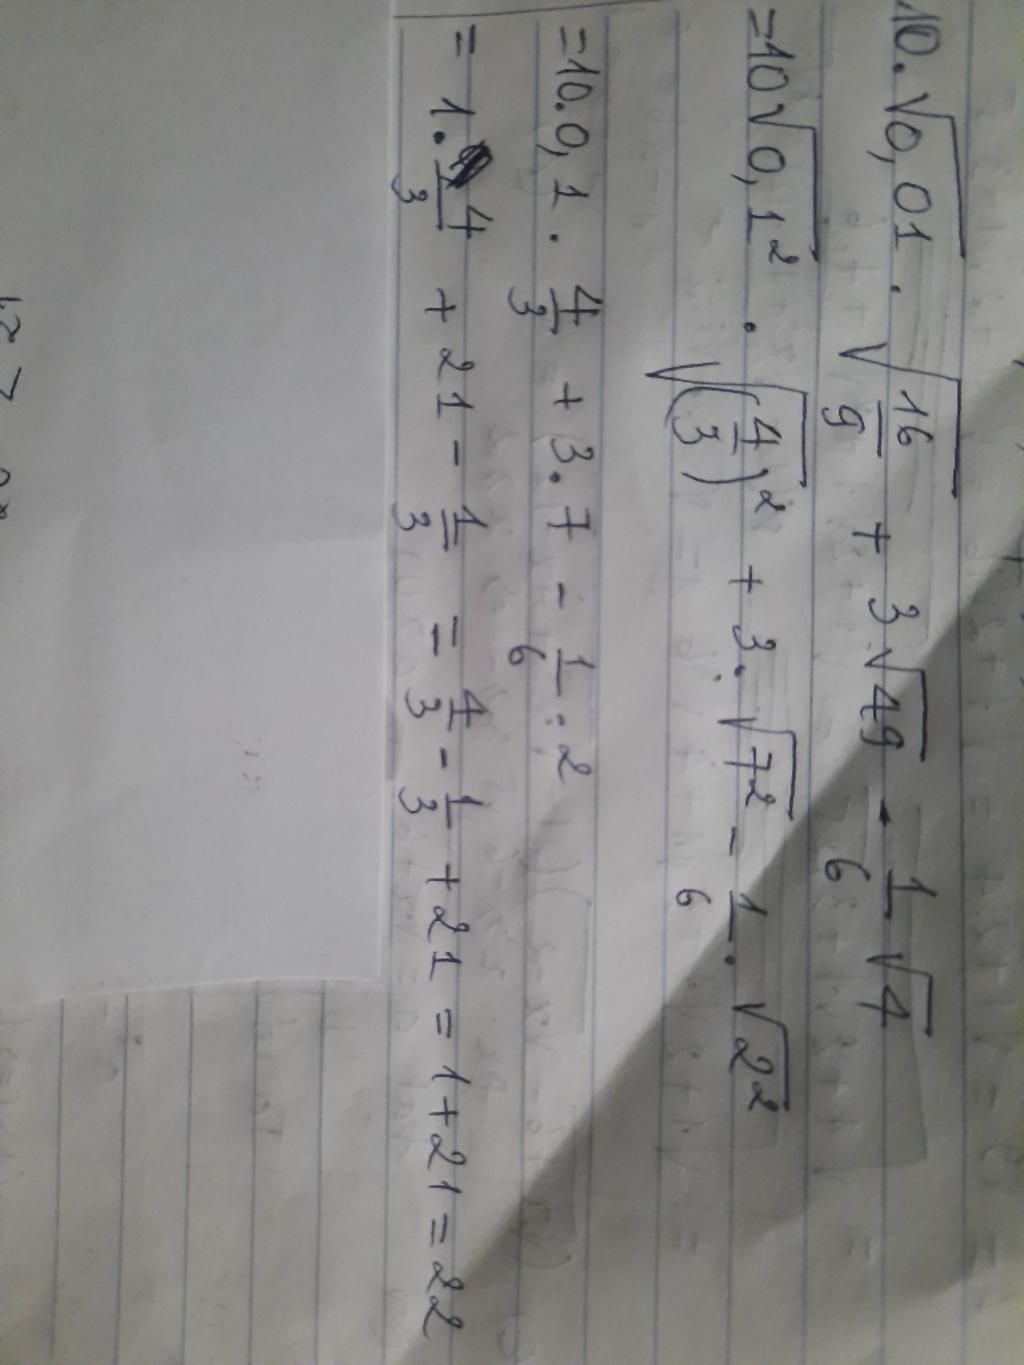 10.√0,01 . √16/9 + 3√49 - 1/6 √4
=10√0,1² . √(4/3)² + 3.√7² - 1/6 . √2²
=10.0,1 . 4/3 + 3.7 - 1/6 : 2
= 1. 4/3 + 21 - 1/3 = 4/3 - 1/3 + 21 = 1+21=22